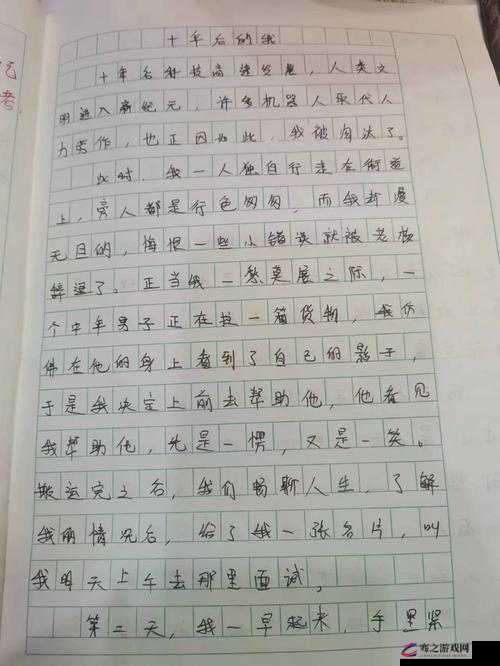 十年后的我
十年后科技高速发展，人类文
明进入新纪元，许多机器人取代人
力劳作，也正因如此，我被淘汰了。
此时，我一人独自行走在街道
上，旁人都是行色匆匆，而我却漫
无目的，悔恨一些小错误就被老板
辞退了。正当我一愁莫展之际，一
个中年男子正在拉一箱货物，我仿
佛在他的身上看到了自己的影子，
于是我决定上前去帮助他，他看见
我帮助他，先是一愣，又是一笑。
搬运完之后，我们畅聊人生，了解
我的情况后，给了我一张名片，叫
我明天上午去那里面试，
第二天，我一早起来，手里紧
考
弯之游戏网